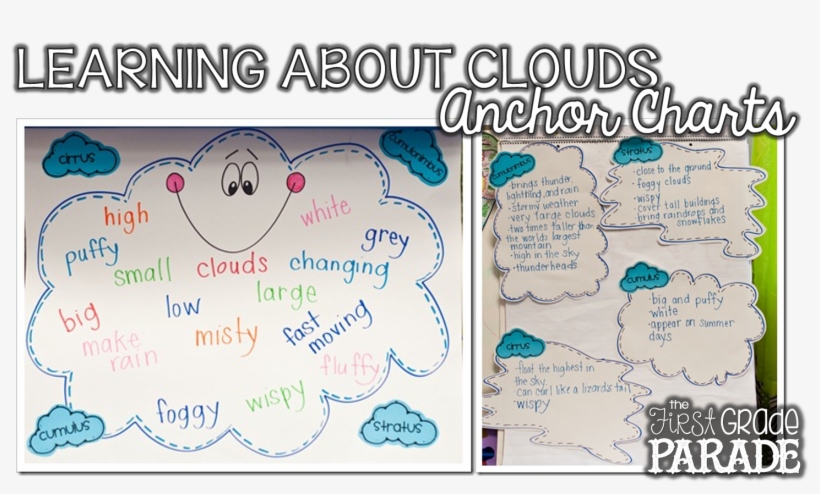 LEARNING ABOUT CLOUDS
Anchor Charts
cirrus
cumulonimbus
high
white
puffy
grey
small clouds changing
large
big
low
make
rain
misty
fast
moving
fluffy
foggy
wispy
cumulus
stratus
cumulonimbus
· brings thunder,
lightning, and rain
· stormy weather
· very large clouds
· two times taller than
the worlds largest
mountain
· high in the sky
· thunderheads
stratus
· close to the ground
· foggy clouds
· wispy
· cover tall buildings
· bring raindrops and
snowflakes
cumulus
· big and puffy
· white
· appear on summer
days
cirrus
· float the highest in
the sky
· can curl like a lizards tail
· wispy
the
First Grade
PARADE